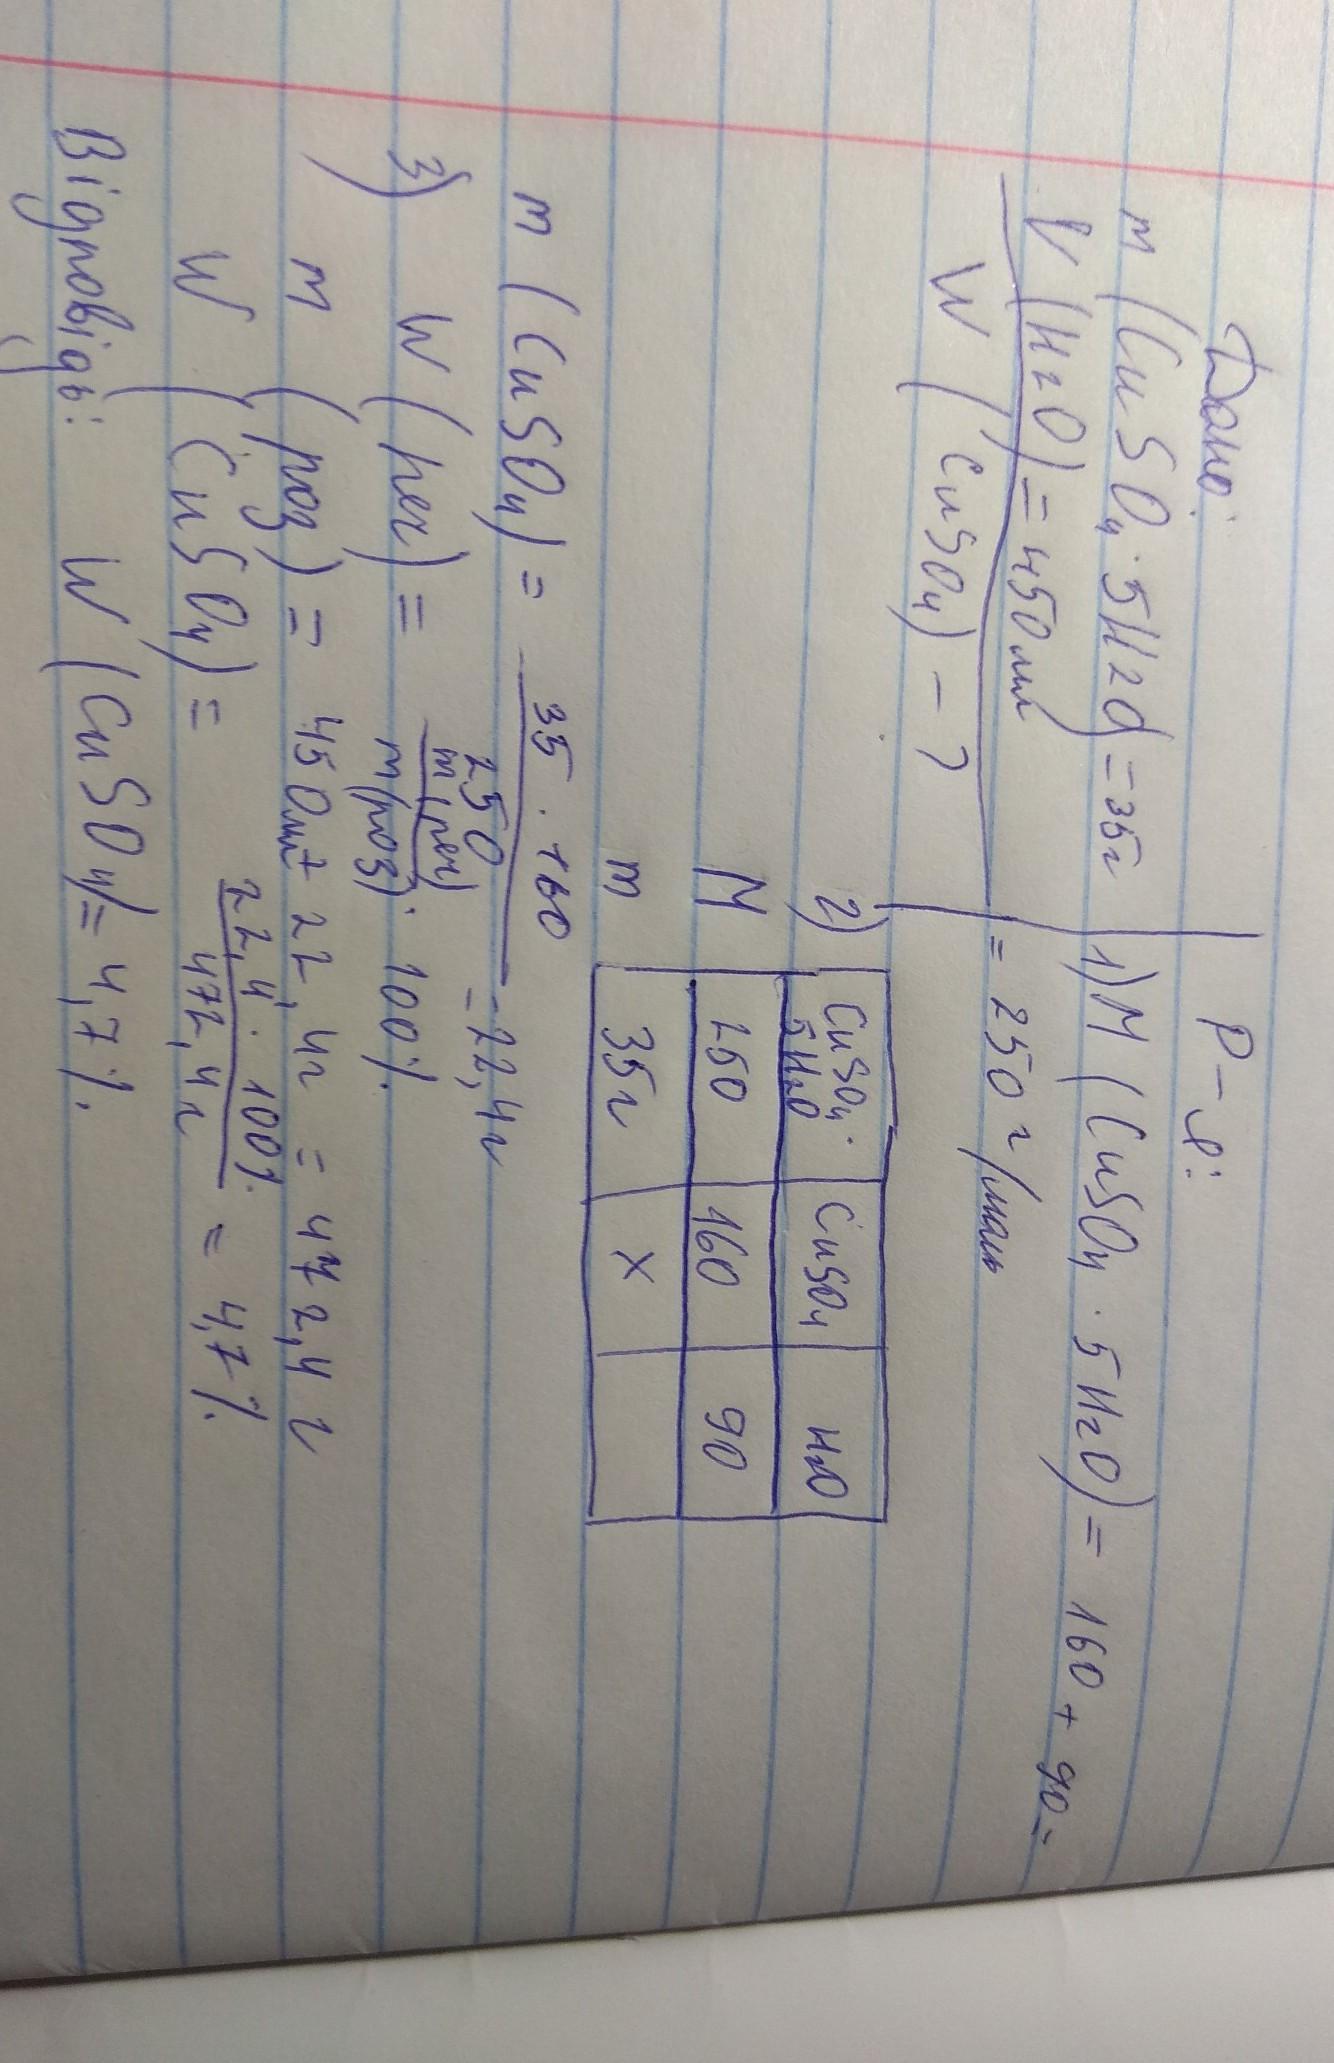 Дано:
m (CuSO₄·5H₂O) = 35г
V (H₂O) = 450мл
W (CuSO₄) - ?
Р-я:
1) M (CuSO₄ · 5H₂O) = 160 + 90 =
= 250 г/моль
2) CuSO₄· 5H₂O CuSO₄ H₂O
M 250 160 90
m 35г x
m (CuSO₄) = 35 · 160 / 250 = 22,4г
3) W (реч) = m(реч) / m(роз) · 100%
m (роз) = 450мл + 22,4г = 472,4 г
W (CuSO₄) = 22,4 · 100% / 472,4г = 4,7%.
Відповідь: W (CuSO₄) = 4,7%.